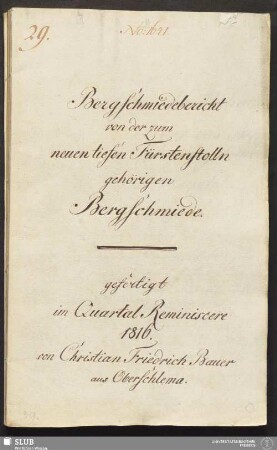 29.
Bergschmiedebericht
von der zum
neuen tiefen Fürstenstolln
gehörigen
Bergschmiede.
gefertigt
im Quartal Reminiscere
1816.
von Christian Friedrich Bauer
aus Oberschlema.
SLUB
Wir führen Wissen.
UNIVERSITÄTSBIBLIOTHEK
FREIBERG